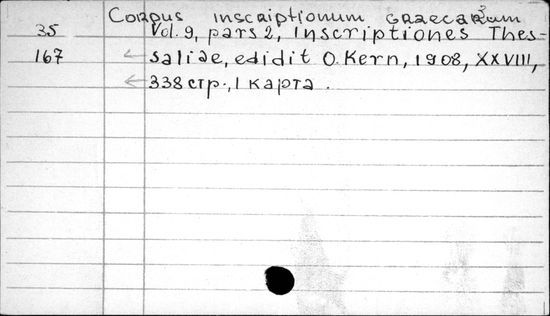 Corpus inscriptionum graecarum
35 Vol. 9, pars 2, Inscriptiones Thes-
167 ← saliae, edidit O. Kern, 1908, XXVIII,
← 338 стр., 1 карта.